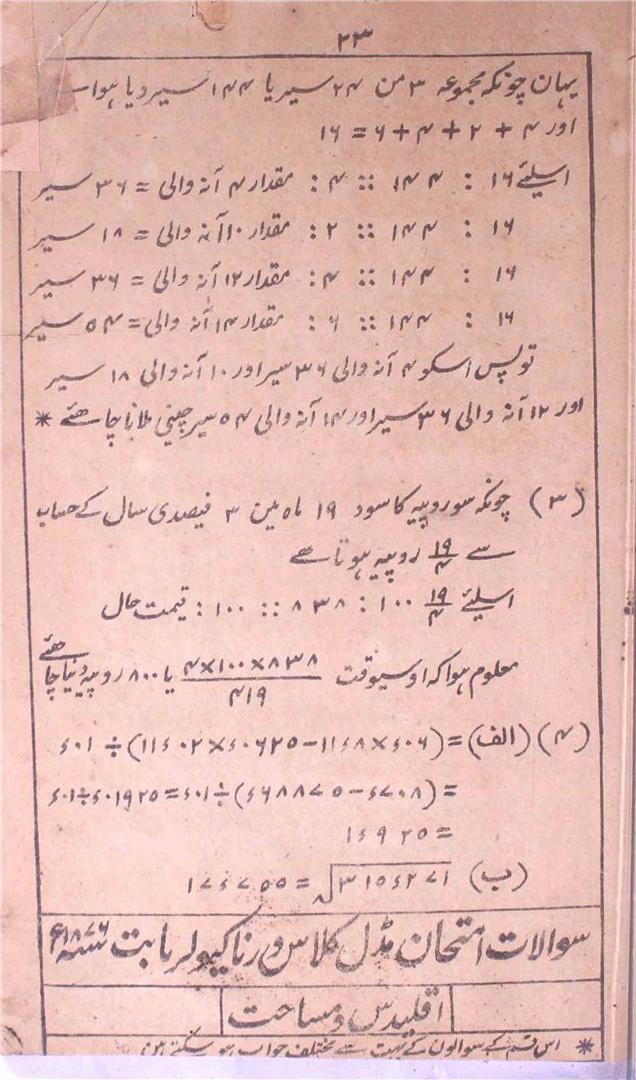 ۲۳
یہان چونکہ مجموعہ ۳ من ۲۴ سیر یا ۱۴۴ سیر دیا ہوا ہے
اور ۴ + ۲ + ۴ + ۶ = ۱۶
اسلیئے ۱۶ : ۱۴۴ :: ۴ : مقدار ۴ آنہ والی = ۳۶ سیر
۱۶ : ۱۴۴ :: ۲ : مقدار ۱۰ آنہ والی = ۱۸ سیر
۱۶ : ۱۴۴ :: ۴ : مقدار ۱۲ آنہ والی = ۳۶ سیر
۱۶ : ۱۴۴ :: ۶ : مقدار ۱۴ آنہ والی = ۵۴ سیر
تو پس اسکو ۴ آنہ والی ۳۶ سیر اور ۱۰ آنہ والی ۱۸ سیر
اور ۱۲ آنہ والی ۳۶ سیر اور ۱۴ آنہ والی ۵۴ سیر چینی ملانا چاھئے *
(۳) چونکہ سو روپیہ کا سود ۱۹ ماہ مین ۳ فیصدی سال کے حساب
سے ۱۹/۴ روپیہ ہوتا ھے
اسلیئے ۱۹/۴ ۱۰۰ : ۸۳۸ :: ۱۰۰ : قیمت حال
معلوم ہوا کہ اوسیوقت ۸۳۸×۱۰۰×۴/۴۱۹ یا ۸۰۰ روپیہ دینا چاھئے
(۴) (الف) = (۰۶ء×۸ء۱۱ − ۰۶۲۵ء×۰۲ء۱۱) ÷ ۰۱ء
= (۷۰۸ء − ۶۸۸۷۵ء) ÷ ۰۱ء = ۰۱۹۲۵ء ÷ ۰۱ء
= ۹۲۵ء۱
(ب) √۳۱۵ء۲۷۱ = ۱۷ء۷۵۵
سوالات امتحان مڈل کلاس ورناکیولر بابت سنہ ۱۸۷۶ء
اقلیدس و مساحت
* اس قسم کے سوالون کے بہت سے مختلف جواب ہو سکتے ہین